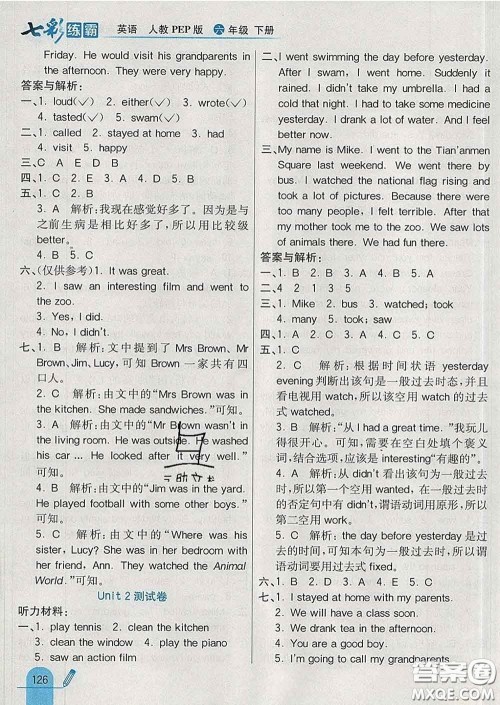 七彩练霸 英语 人教PEP版 六年级 下册
Friday. He would visit his grandparents in
the afternoon. They would be happy.
答案与解析:
一、1. loud(✓) 2. either(✓) 3. wrote(✓)
4. tasted(✓) 5. swam(✓)
二、1. called 2. stayed at home 3. had
4. visit 5. happy
三、C A E D B
四、1. C 2. E 3. D 4. B 5. A
五、1. C 2. B
3. A 解析:我现在感觉好多了。因为是与
之前生病是相比好多了,所以用比较级
better。
4. B 5. C
六、(仅供参考)1. It was great.
2. I saw an interesting film and went to
the zoo.
3. Yes, I did.
4. No, I didn't.
七、1. B 解析:文中提到了 Mrs Brown, Mr
Brown, Jim, Lucy,可知 Brown 一家共有四
口人。
2. C 解析:由文中的“Mrs Brown was in
the kitchen. She made sandwiches.”可知。
3. B 解析:由文中的“Mr Brown wasn't in
the living room. He was outside. He washed
his car ... He looked after it very well.”
可知。
4. B 解析:由文中的“Jim was in the yard.
He played football with some other boys.”
可知。
5. C 解析:由文中的“Where was his
sister, Lucy? She was in her bedroom with
her friend, Ann. They watched the Animal
World.”可知。
Unit 2 测试卷
听力材料:
一、1. play tennis 2. clean the kitchen
3. clean the window 4. play the piano
5. saw an action film
二、I went swimming the day before yesterday.
After I swam, I went home. Suddenly it
rained. I didn't take my umbrella. I had a
cold that night. I had to take some medicine
yesterday. I drank a lot of water. And I feel
better now.
三、My name is Mike. I went to the Tian'anmen
Square last weekend. We went there by
bus. I watched the national flag rising and
took many pictures. They are beautiful. But
after that, I felt terrible. After that my
mother and I went to the zoo. We saw lots
of animals there. We had fun.
答案与解析:
一、1. B 2. A 3. B 4. A 5. B
二、3 4 1 5 2
三、1. Mike 2. bus 3. watched; took
4. many 5. took; saw
四、1. A 2. B 3. A 4. C 5. C
五、1. C
2. C 解析:根据时间状语 yesterday
evening 判断出该句是一般过去时态,并且
看电视用 watch,所以该空用 watch 的过去
式 watched。
3. B 解析:从“I had a great time.”“我玩儿
得很开心。”可知,需要在空白处填个褒义
词,结合选项,应该是 interesting“有趣的”。
4. A 解析:从 didn't 可以看出该句为一般过
去时态,所以第一空用 wanted,在一般过去时
的否定句中有 didn't,谓语动词用原形,所以
第二空用 wash。
5. C 解析:the day before yesterday 是过
去的时间,可知句子是一般过去时态,所以
谓语动词要用过去式 fixed。
六、1. D 2. A 3. E 4. C 5. B
七、1. I stayed at home with my parents.
2. We will have a class soon.
3. We drank tea in the afternoon.
4. You are a good boy.
5. I'm going to call my grandparents.
126
答案圈
MXQE.COM